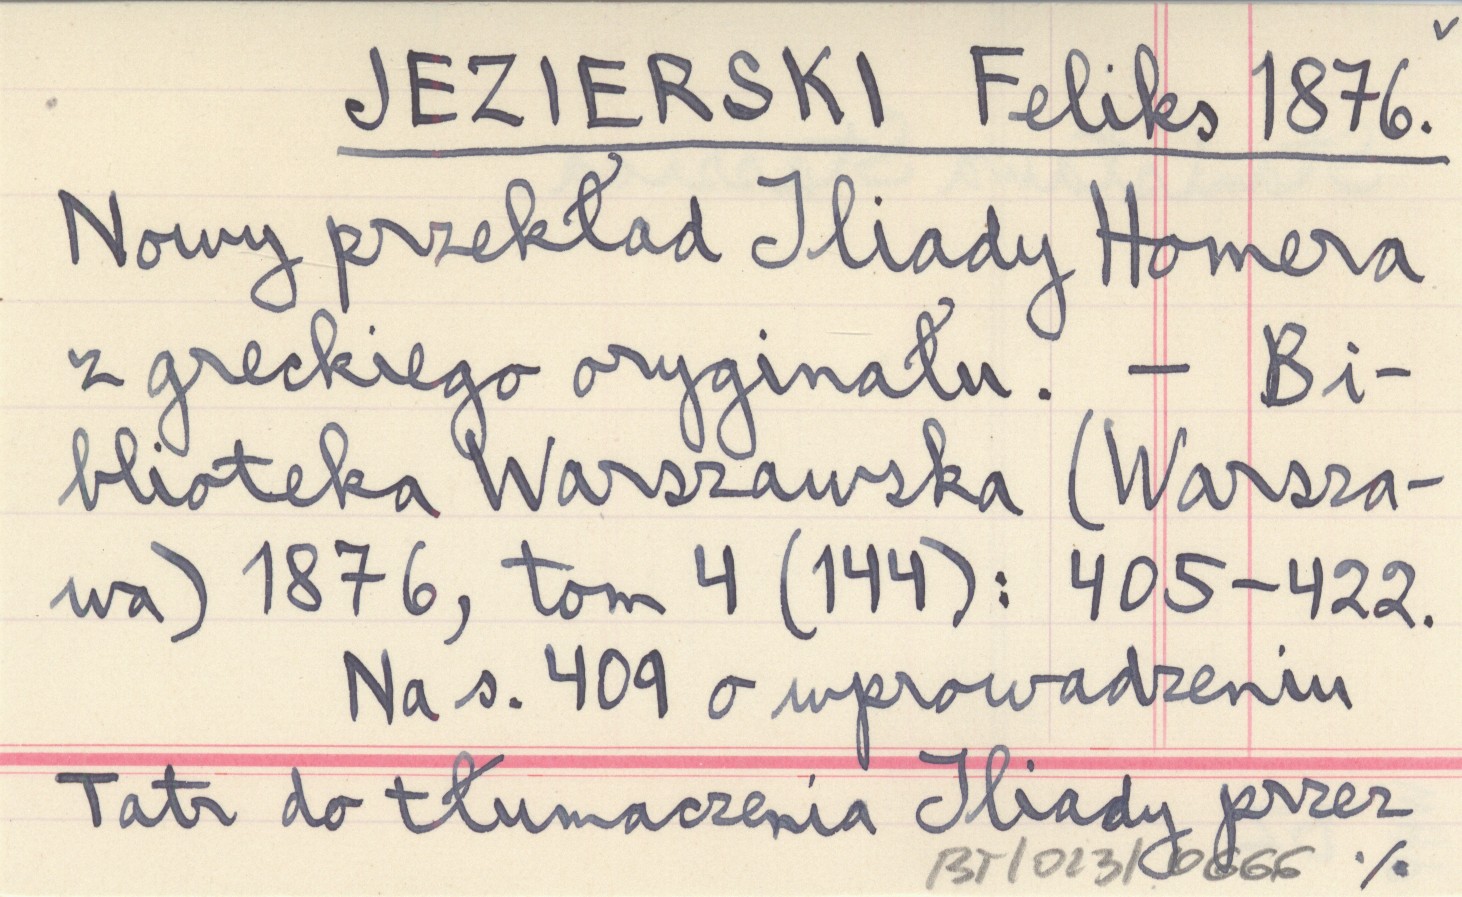 v
JEZIERSKI Feliks 1876.
Nowy przekład Iliady Homera
z greckiego oryginału. – Bi-
blioteka Warszawska (Warsza-
wa) 1876, tom 4 (144): 405-422.
Na s. 409 o wprowadzeniu
Tatr do tłumaczenia Iliady przez
BT/023/0666 ./.